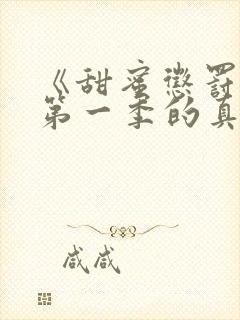 《甜蜜惩罚
第一季的真
咸咸